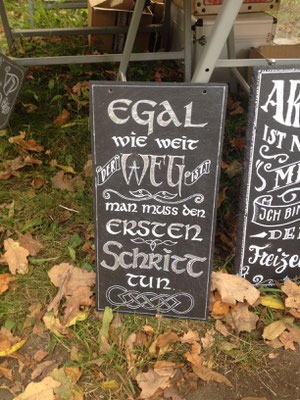 EGAL
wie weit
DER WEG IST
man muss den
ERSTEN
Schritt
TUN
AK
IST N
ME
ICH BIN
DE
Freizei